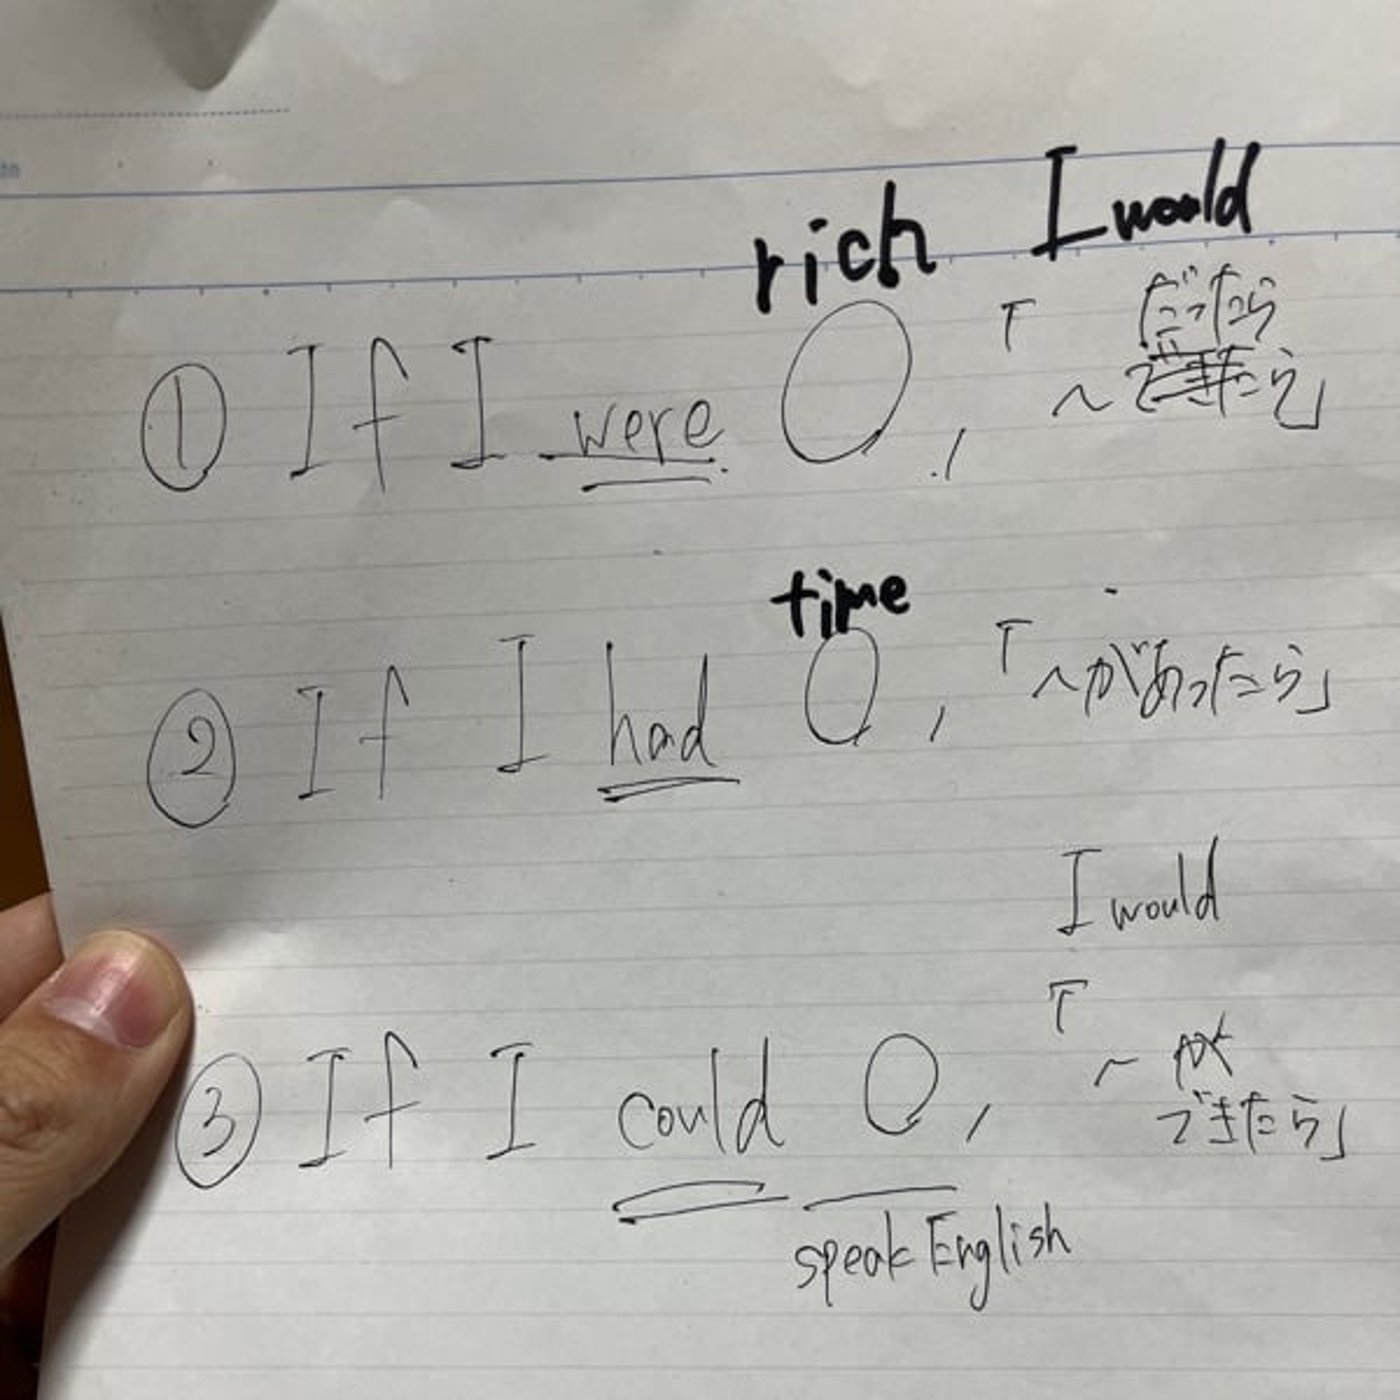 rich I would
① If I were ○, 「~だったら」
time
② If I had ○, 「~があったら」
I would
③ If I could ○, 「~が
できたら」
speak English